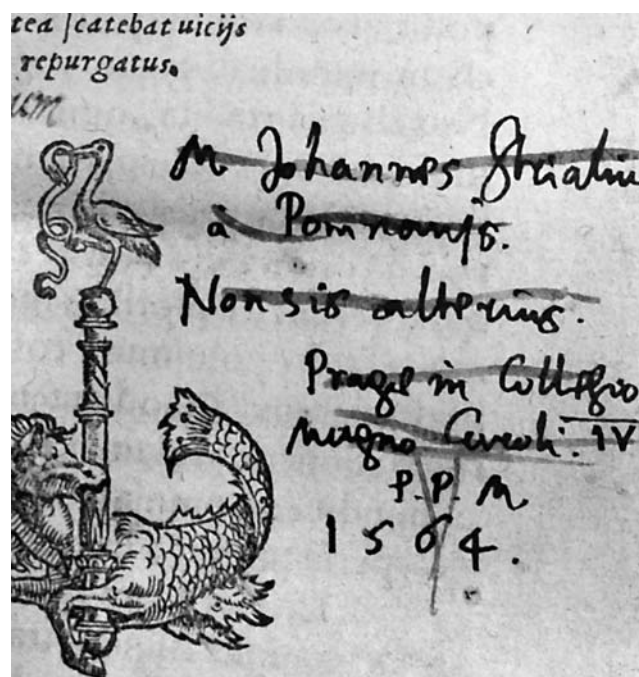 tea scatebat uicijs
repurgatus.
um
M Johannes Strialiu
à Pomnouijs.
Non sis alterius.
Pragę in Collegio
magno Caroli. IV
P. P. M
1564.